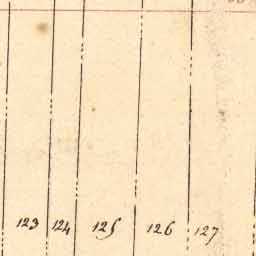 123 124 125 126 127